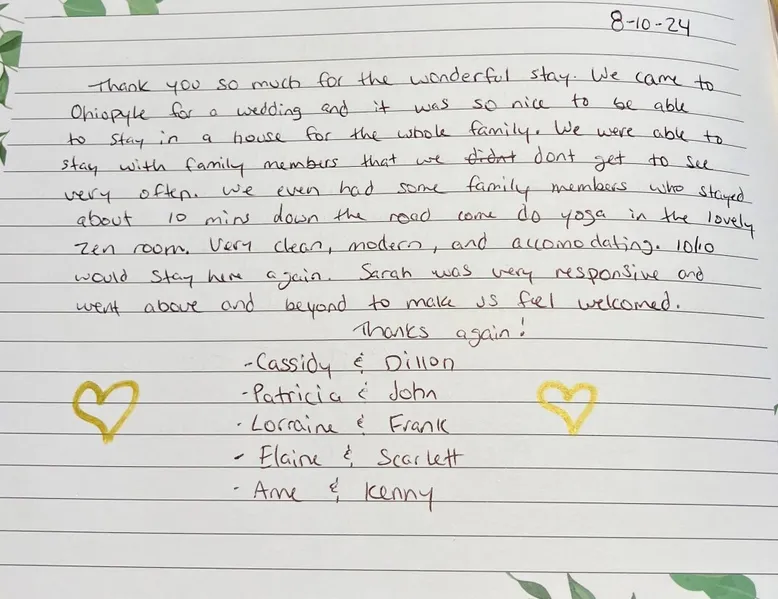 8-10-24
Thank you so much for the wonderful stay. We came to
Ohiopyle for a wedding and it was so nice to be able
to stay in a house for the whole family. We were able to
stay with family members that we didnt dont get to see
very often. We even had some family members who stayed
about 10 mins down the road come do yoga in the lovely
zen room. Very clean, modern, and accomodating. 10/10
would stay here again. Sarah was very responsive and
went above and beyond to make us feel welcomed.
Thanks again!
-Cassidy & Dillon
-Patricia & John
- Lorraine & Frank
- Elaine & Scarlett
- Anne & Kenny